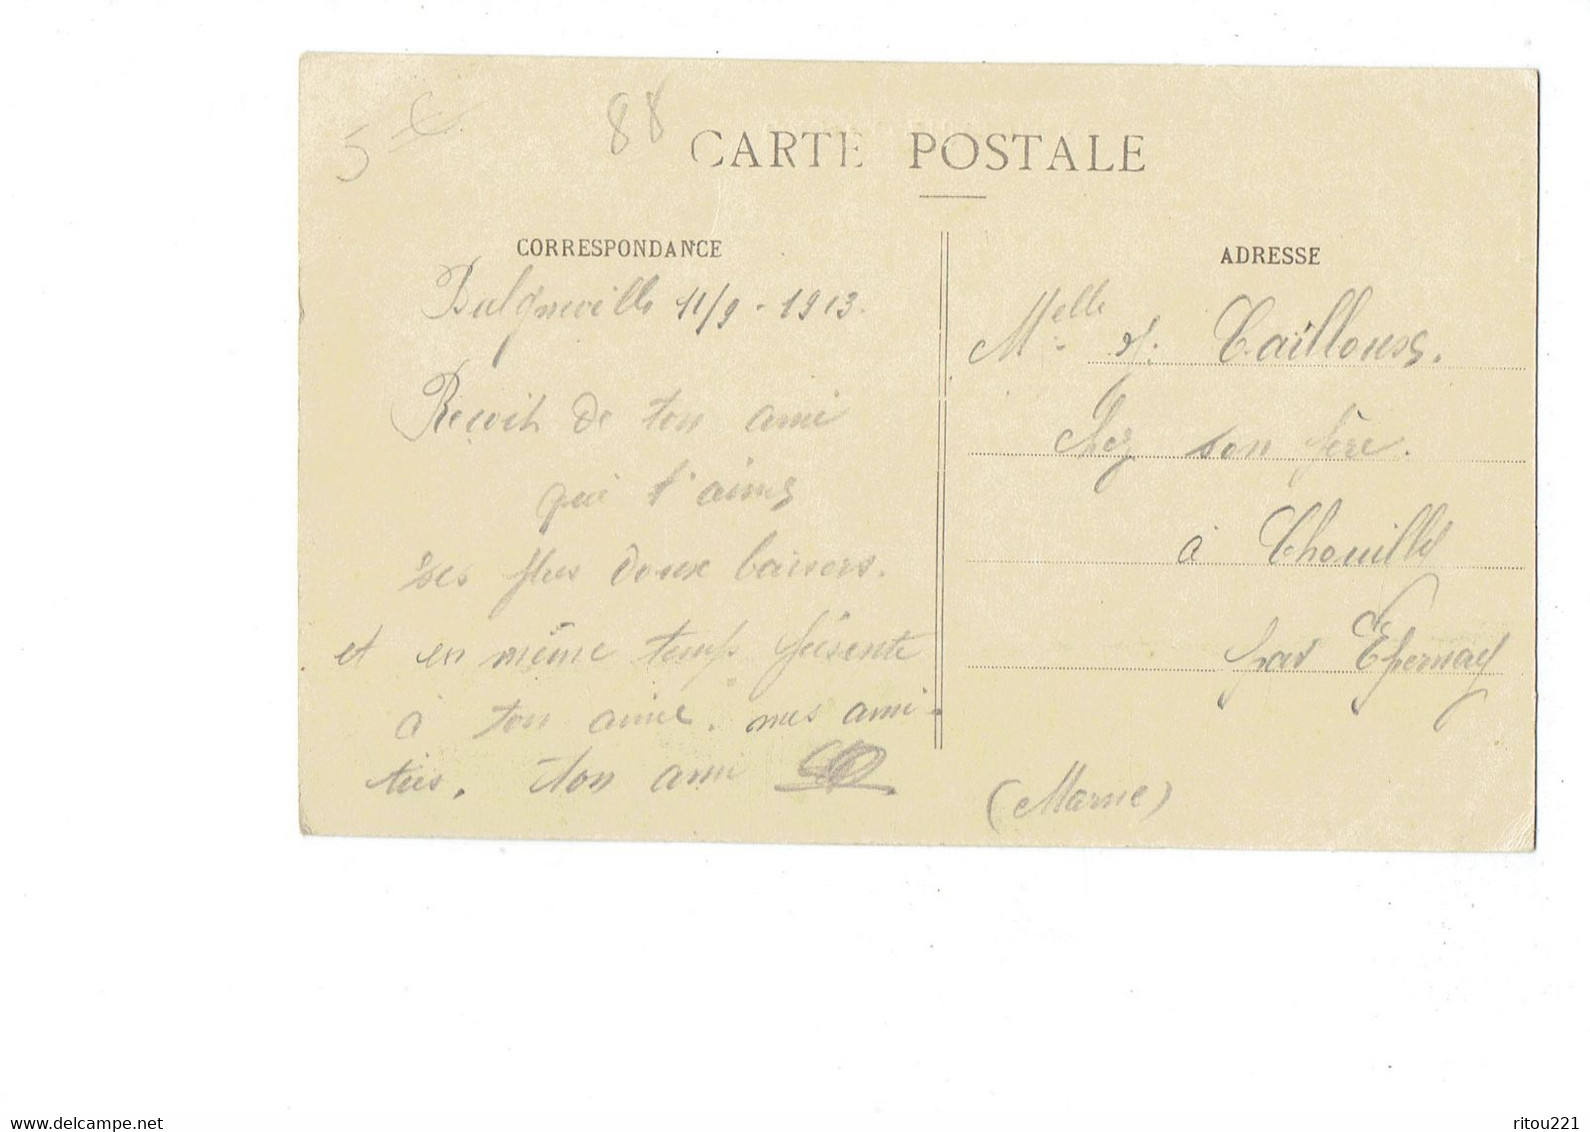 5 €
88
CARTE POSTALE
CORRESPONDANCE
Bulgneville 11/9 - 1913.
Reçoit de ton ami
qui t'aime
ses plus doux baisers.
et en même temps présente
à ton amie. mes ami-
tiés. ton ami
ADRESSE
Melle
Chez son père.
à Chouilly
par Epernay
(Marne)
www.delcampe.net
ritou221